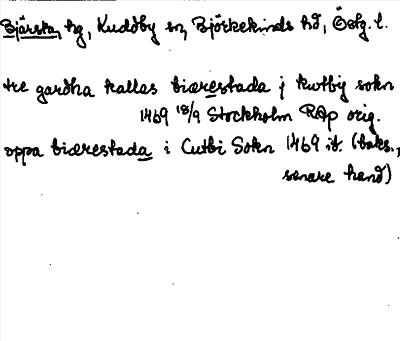 Bjärsta, hg, Kuddby sn, Björkekinds hd, Ög. l.
tre gardha kallas biærestada j kutby sokn
1469 18/9 Stockholm RAp orig.
oppa biærestada i Cutbi Sokn 1469 it. (baks.,
senare hand)